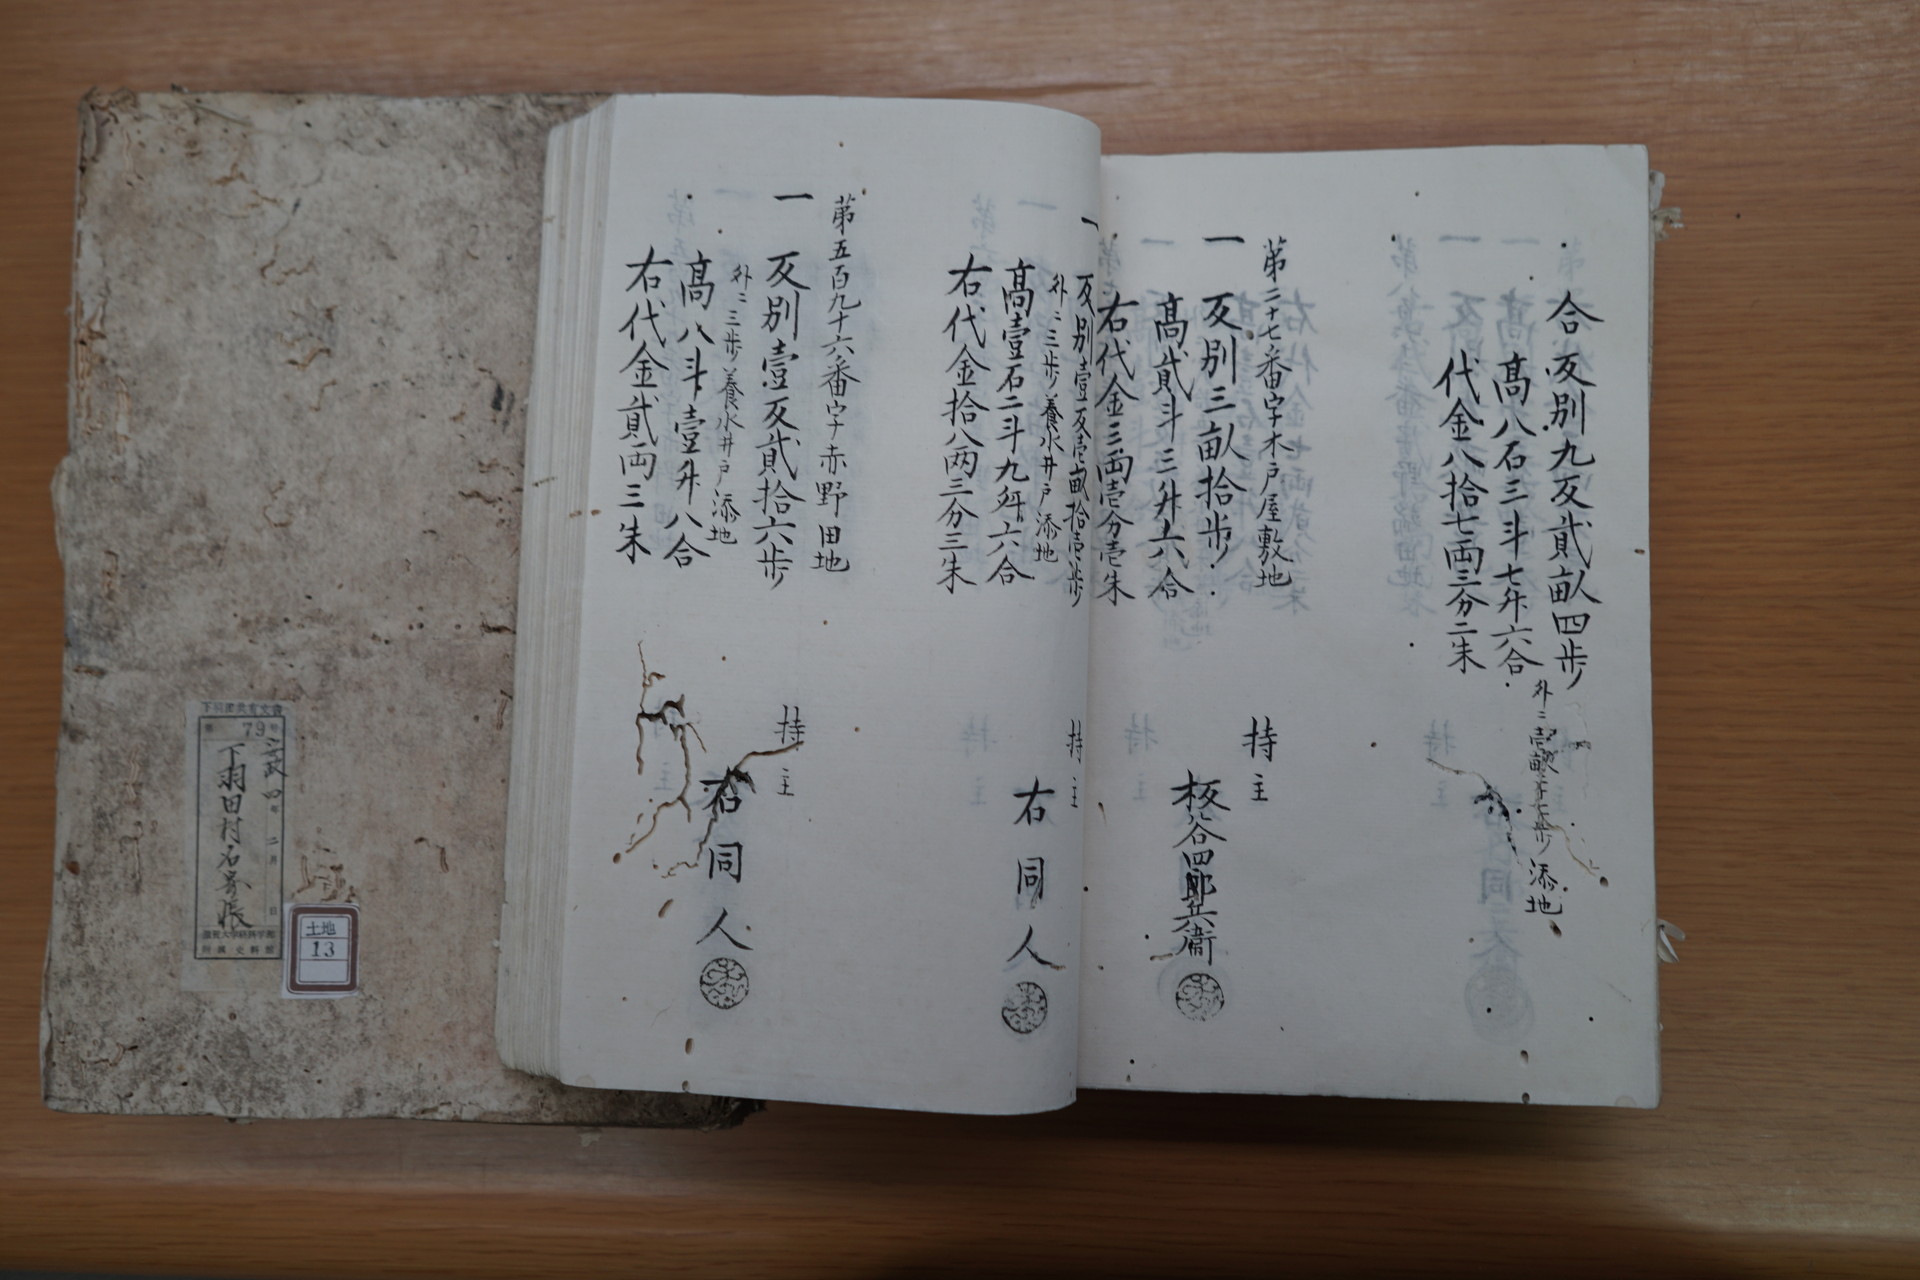 合反別九反貳畝四歩
高八石三斗七升六合
代金八拾七両三分二朱
外ニ
添地
第二十七番字木戸屋敷地
一 反別三畝拾歩
高貳斗三升六合
右代金三両壱分壱朱
持主
板谷四郎兵衞
一 反別壹反壱畝拾壱歩
外ニ三歩養水井戸添地
高壹石二斗九升六合
右代金拾八両三分三朱
持主
右同人
第五百九十六番字赤野田地
一 反別壹反貳拾六歩
外ニ三歩養水井戸添地
高八斗壹升八合
右代金貳両三朱
持主
右同人
79
四年二月 日
下羽田村名寄帳
土地
13